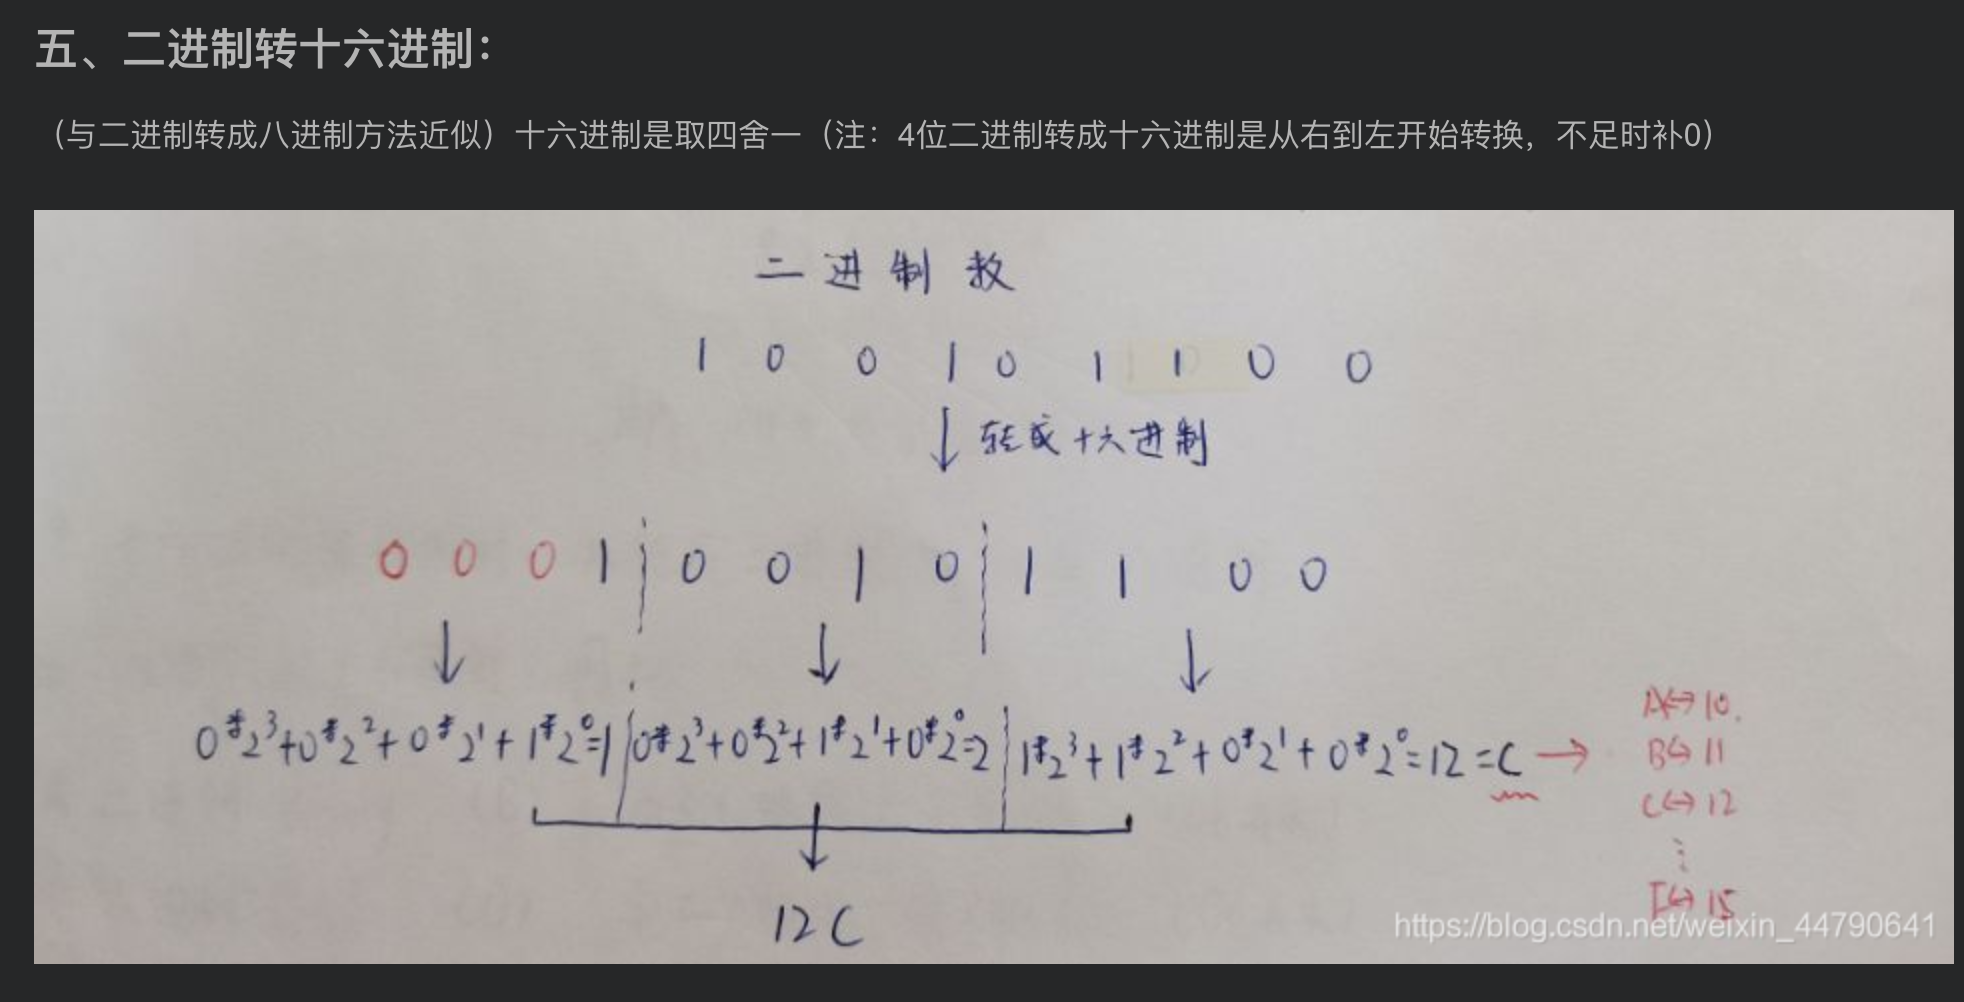 五、二进制转十六进制：
（与二进制转成八进制方法近似）十六进制是取四舍一（注：4位二进制转成十六进制是从右到左开始转换，不足时补0）
二进制数
1 0 0 1 0 1 1 0 0
转成十六进制
0 0 0 1 0 0 1 0 1 1 0 0
0*2³+0*2²+0*2¹+1*2⁰=1 0*2³+0*2²+1*2¹+0*2⁰=2 1*2³+1*2²+0*2¹+0*2⁰=12=C
A↔10.
B↔11
C↔12
⋮
F↔15
12C
https://blog.csdn.net/weixin_44790641